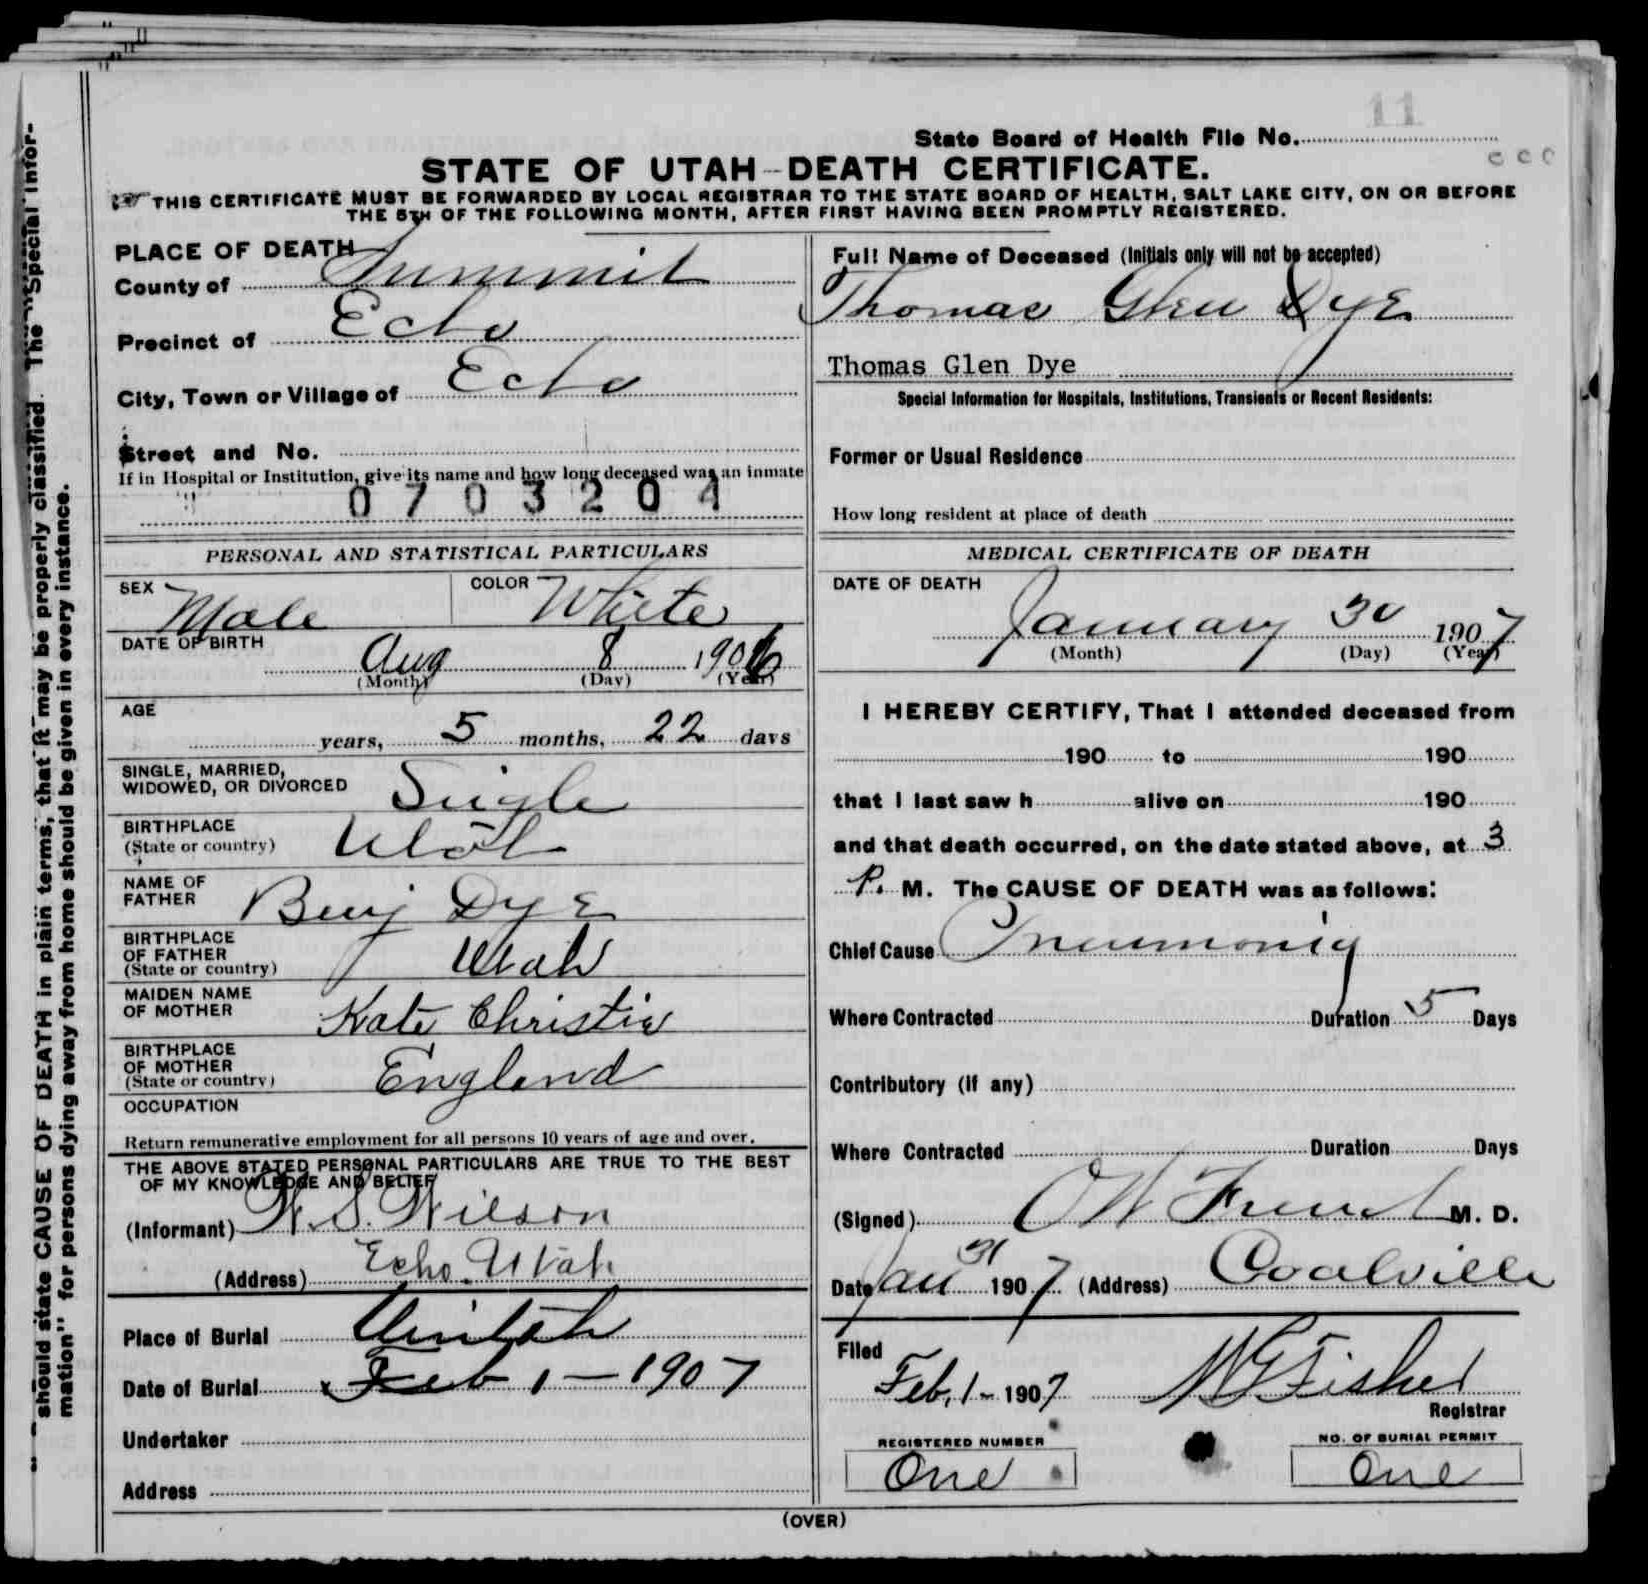 11
State Board of Health File No.
STATE OF UTAH—DEATH CERTIFICATE.
THIS CERTIFICATE MUST BE FORWARDED BY LOCAL REGISTRAR TO THE STATE BOARD OF HEALTH, SALT LAKE CITY, ON OR BEFORE
THE 5TH OF THE FOLLOWING MONTH, AFTER FIRST HAVING BEEN PROMPTLY REGISTERED.
should state CAUSE OF DEATH in plain terms, that it may be properly classified. The "Special Infor-
mation" for persons dying away from home should be given in every instance.
PLACE OF DEATH
County of Summit
Precinct of Echo
City, Town or Village of Echo
Street and No.
If in Hospital or Institution, give its name and how long deceased was an inmate
0703204
PERSONAL AND STATISTICAL PARTICULARS
SEX Male COLOR White
DATE OF BIRTH
Aug 8 1906
(Month) (Day) (Year)
AGE
years, 5 months, 22 days
SINGLE, MARRIED,
WIDOWED, OR DIVORCED Sigle
BIRTHPLACE
(State or country) Utah
NAME OF
FATHER Benj Dye
BIRTHPLACE
OF FATHER
(State or country) Utah
MAIDEN NAME
OF MOTHER Kate Christie
BIRTHPLACE
OF MOTHER
(State or country) England
OCCUPATION
Return remunerative employment for all persons 10 years of age and over.
THE ABOVE STATED PERSONAL PARTICULARS ARE TRUE TO THE BEST
OF MY KNOWLEDGE AND BELIEF
(Informant) W. S. Wilson
(Address) Echo Utah
Place of Burial Uintah
Date of Burial Feb 1 — 1907
Undertaker
Address
Full Name of Deceased (Initials only will not be accepted)
Thomas Glen Dye
Thomas Glen Dye
Special Information for Hospitals, Institutions, Transients or Recent Residents:
Former or Usual Residence
How long resident at place of death
MEDICAL CERTIFICATE OF DEATH
DATE OF DEATH
January 30 1907
(Month) (Day) (Year)
I HEREBY CERTIFY, That I attended deceased from
190 to 190
that I last saw h alive on 190
and that death occurred, on the date stated above, at 3
P. M. The CAUSE OF DEATH was as follows:
Chief Cause Pneumonia
Where Contracted Duration 5 Days
Contributory (if any)
Where Contracted Duration Days
(Signed) M. D.
Date Jan 31 1907 (Address) Coalville
Filed
Feb. 1 - 1907 Fisher
Registrar
REGISTERED NUMBER
One
NO. OF BURIAL PERMIT
One
(OVER)